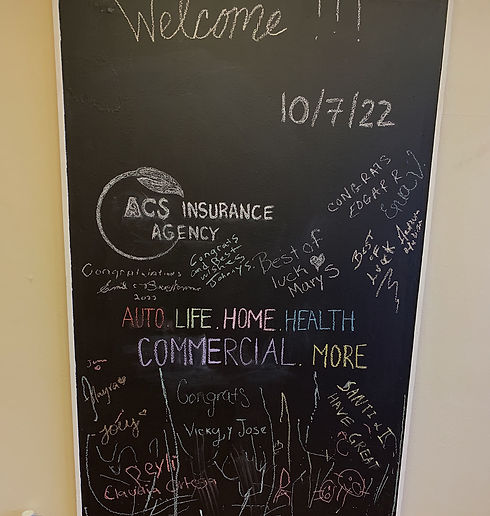 Welcome !!!
10/7/22
CONGRATS
EDGAR R
ACS INSURANCE
AGENCY
Congrats
and Best
wishes
Johnny S.
Best of
luck
Mary S
BEST
OF
LUCK
Congratulations
2022
AUTO. LIFE. HOME. HEALTH
COMMERCIAL. MORE
Jim
Mayra
Joey
Congrats
Vicky y Jose
SANTI & II
HAVE GREAT
Leyli
Claudia Ortega